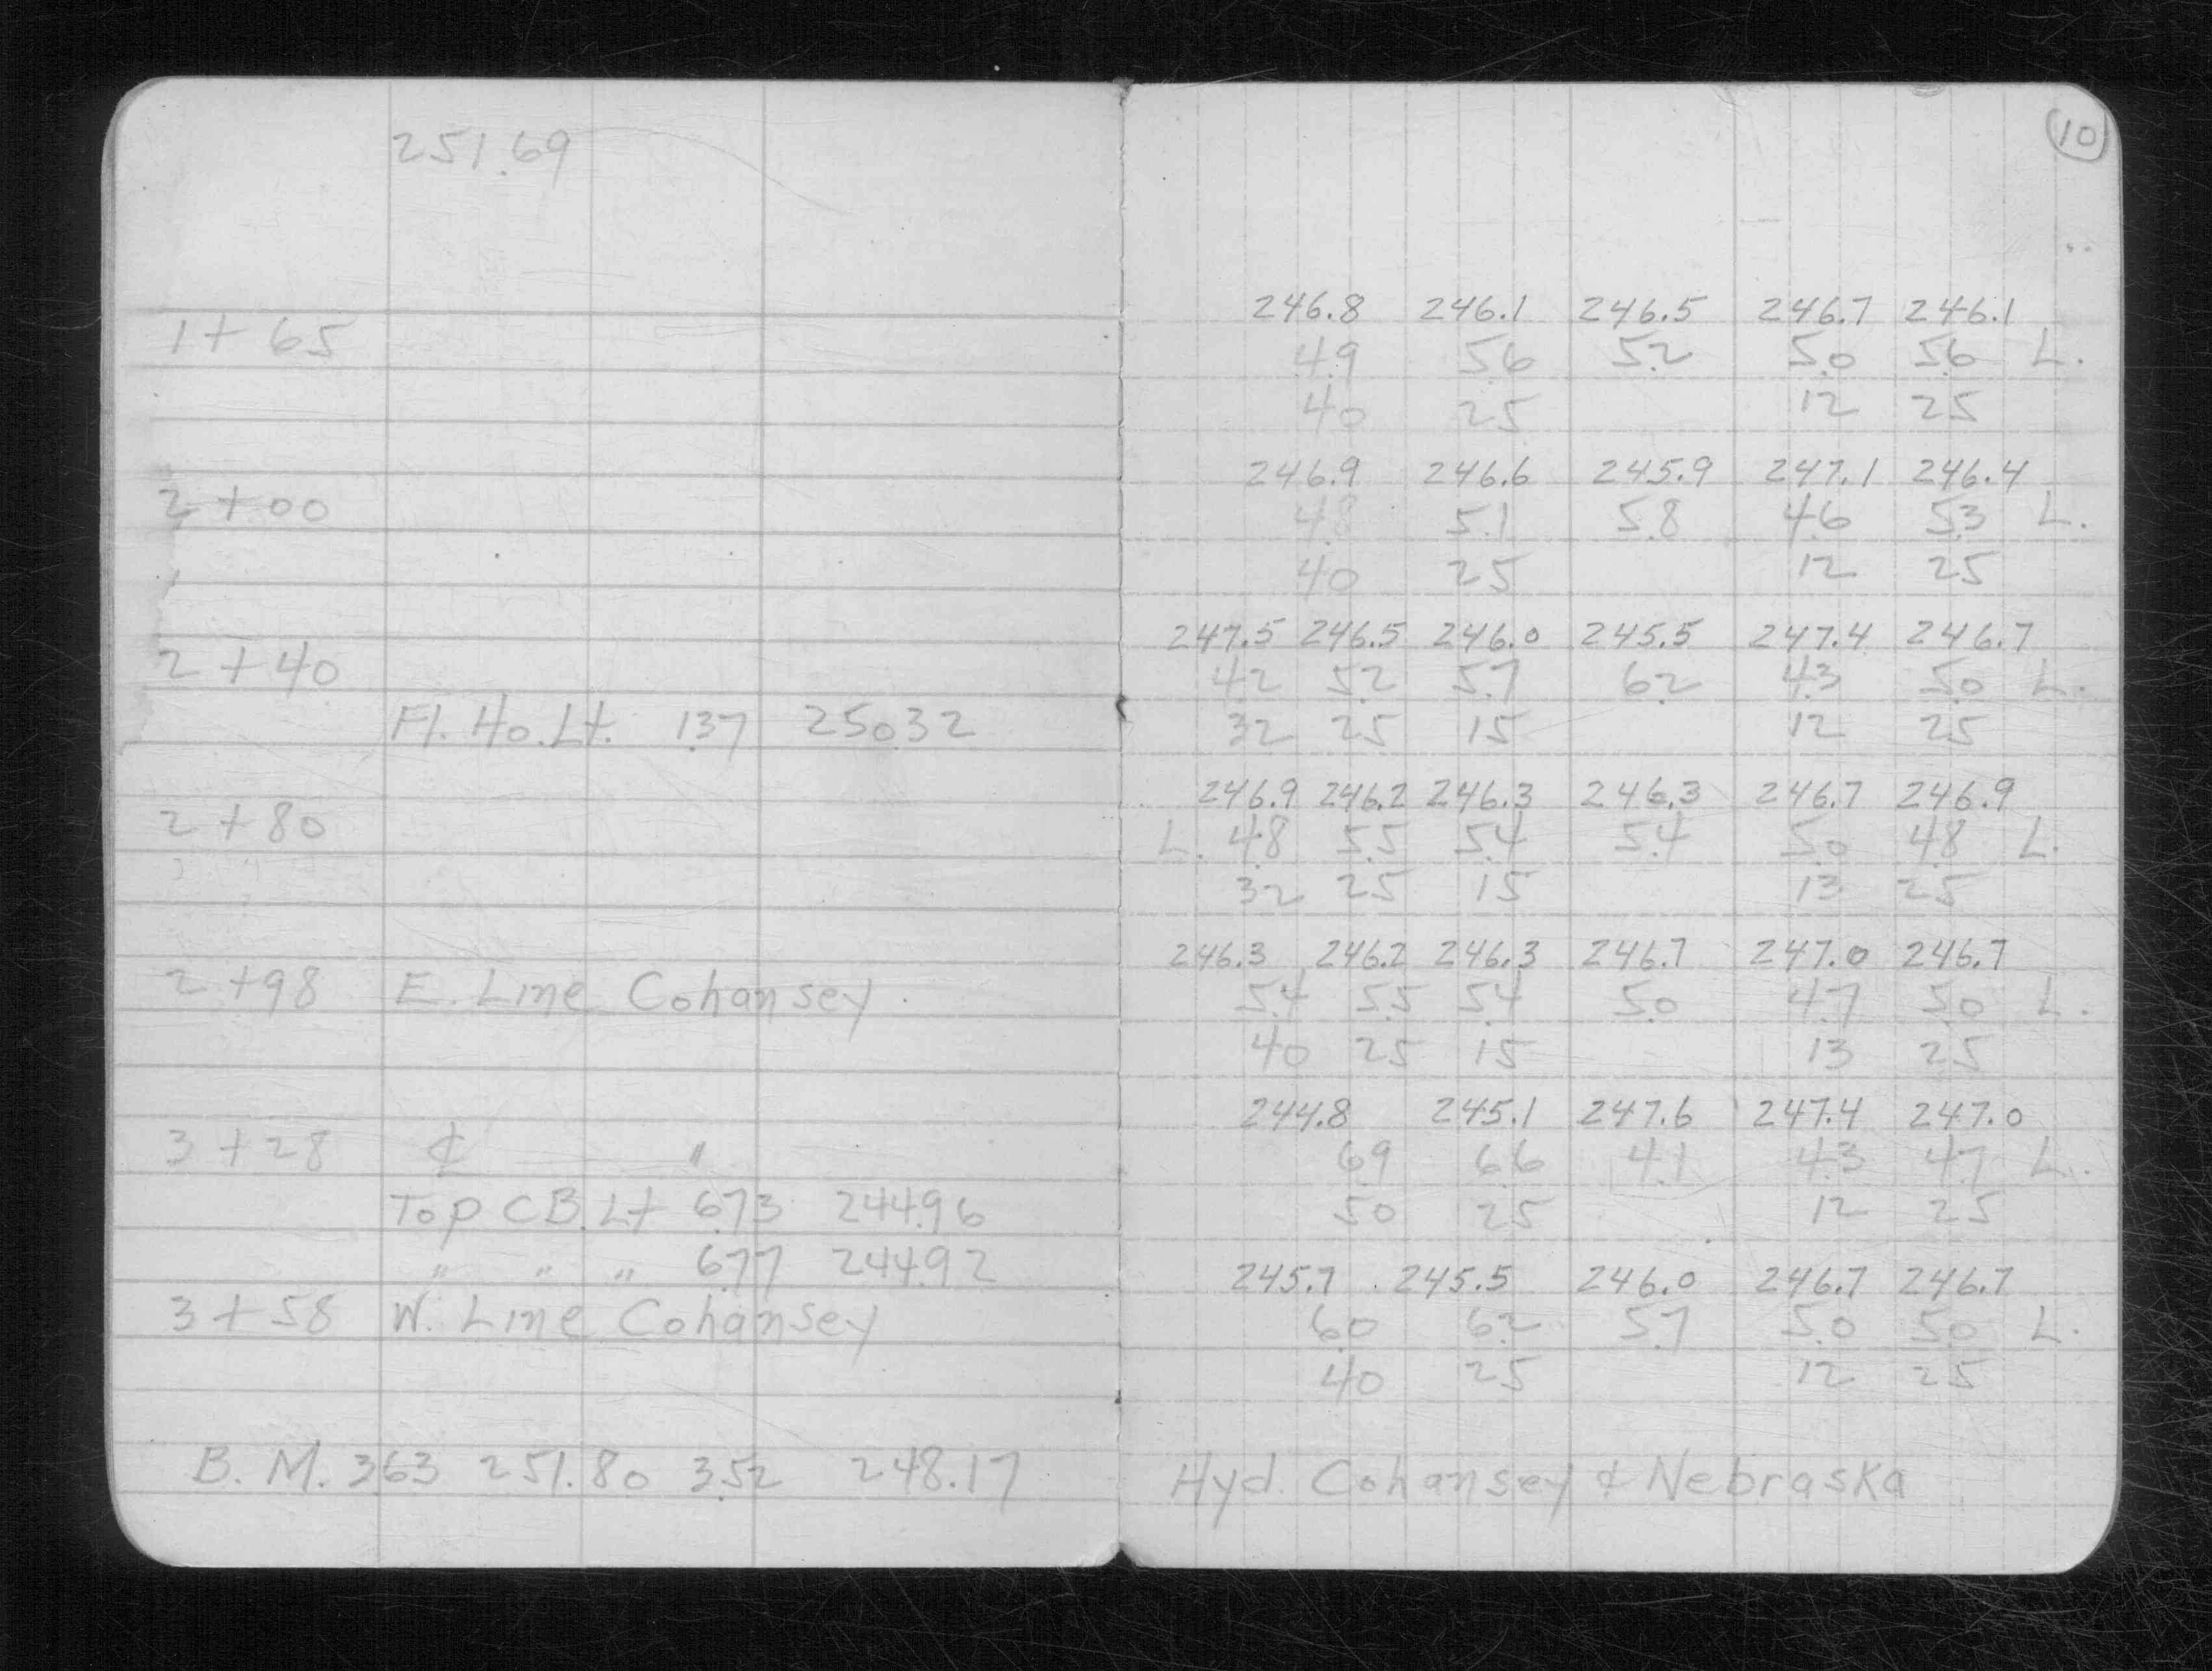 251.69
1+65
2+00
2+40
Fl. Ho. Lt. 1.37 250.32
2+80
2+98 E. Line Cohansey.
3+28 ₵ "
Top C.B. Lt 6.73 244.96
" " " 6.77 244.92
3+58 W. Line Cohansey
B. M. 3.63 251.80 3.52 248.17
10
246.8 246.1 246.5 246.7 246.1
4.9 5.6 5.2 5.0 5.6 L.
40 25 12 25
246.9 246.6 245.9 247.1 246.4
4.8 5.1 5.8 4.6 5.3 L.
40 25 12 25
247.5 246.5 246.0 245.5 247.4 246.7
4.2 5.2 5.7 6.2 4.3 5.0 L.
32 25 15 12 25
246.9 246.2 246.3 246.3 246.7 246.9
L. 4.8 5.5 5.4 5.4 5.0 4.8 L.
32 25 15 13 25
246.3 246.2 246.3 246.7 247.0 246.7
5.4 5.5 5.4 5.0 4.7 5.0 L.
40 25 15 13 25
244.8 245.1 247.6 247.4 247.0
6.9 6.6 4.1 4.3 4.7 L.
50 25 12 25
245.7 245.5 246.0 246.7 246.7
6.0 6.2 5.7 5.0 5.0 L.
40 25 12 25
Hyd. Cohansey & Nebraska